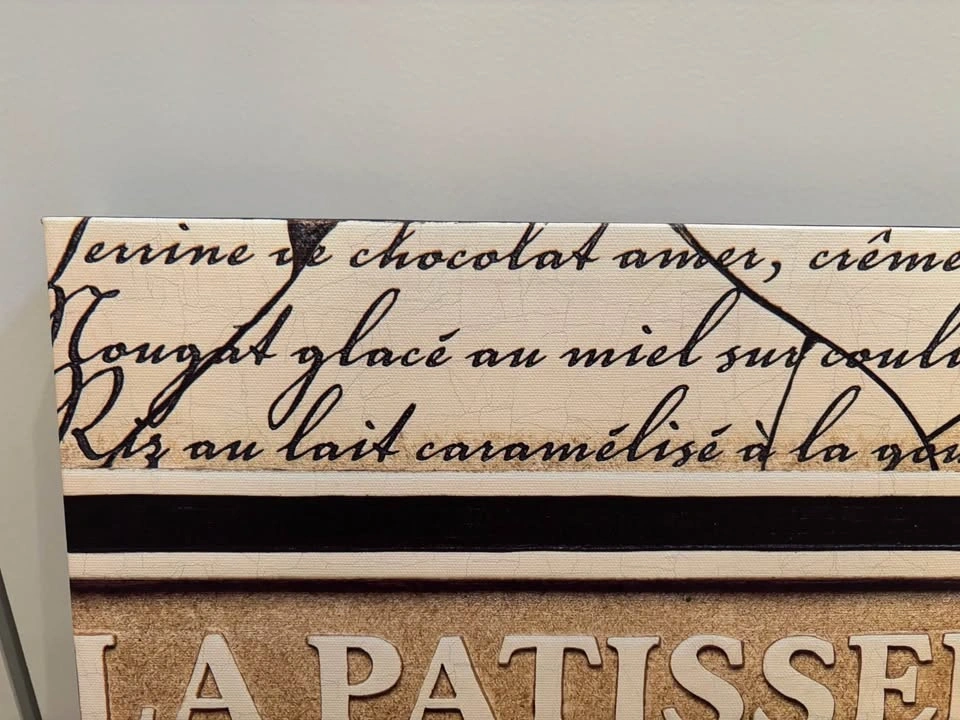 Terrine de chocolat amer, crême
Nougat glacé au miel sur couli
Riz au lait caramélisé à la gou
LA PATISSE